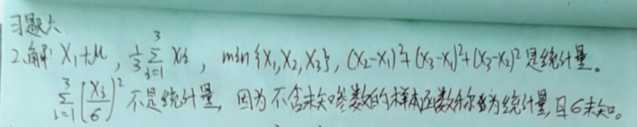 习题六
2.解: X₁+μ, 1/3 ∑_{i=1}^{3} Xᵢ, min{X₁,X₂,X₃}, (X₂-X₁)²+(X₃-X₁)²+(X₃-X₂)² 是统计量。
∑_{i=1}^{3} (Xᵢ/σ)² 不是统计量, 因为不含未知参数的样本函数称为统计量,且σ未知。